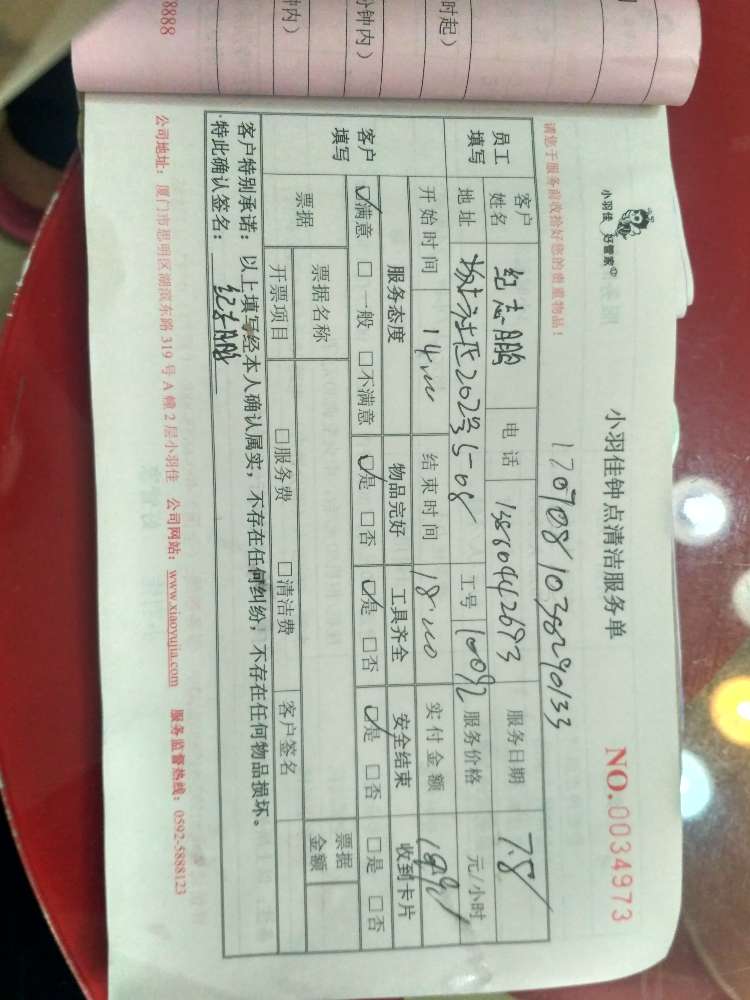 小羽佳 好管家
小羽佳钟点清洁服务单
NO.0034973
请您于服务前收拾好您的贵重物品！
员工填写
客户姓名 纪志鹏 电话 13860442693 服务日期 7.8
地址 工号 10092 服务价格 元/小时
开始时间 14:00 结束时间 18:00 实付金额
客户填写
服务态度 物品完好 工具齐全 安全结束 收到卡片
☑满意 □一般 □不满意 ☑是 □否 ☑是 □否 ☑是 □否 □是 □否
票据 票据名称 票据金额
开票项目 □服务费 □清洁费 客户签名
客户特别承诺：以上填写经本人确认属实，不存在任何纠纷，不存在任何物品损坏。
特此确认签名：纪志鹏
公司地址：厦门市思明区湖滨东路319号A幢2层小羽佳 公司网站：www.xiaoyujia.com 服务监督热线：0592-5888123
时起）
分钟内）
钟内）
8888